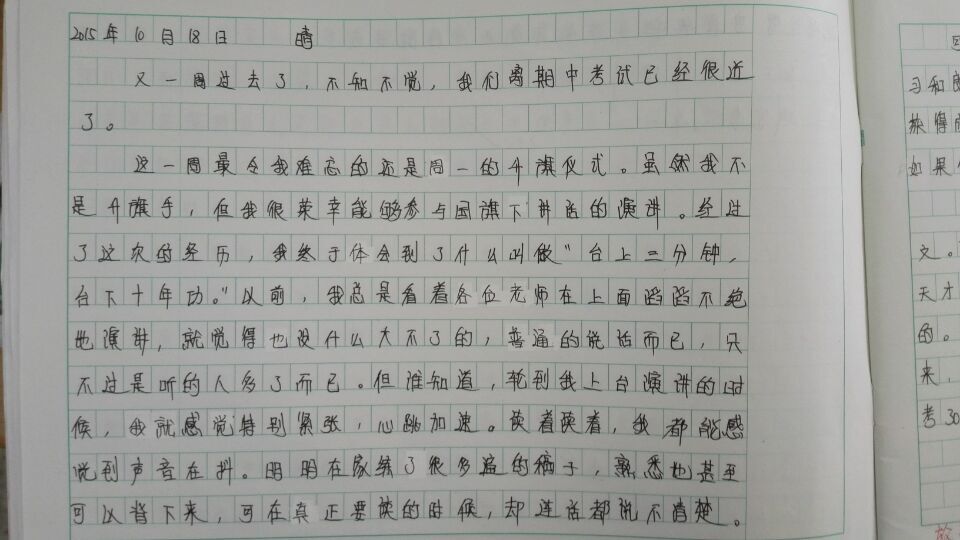 2015年10月18日 晴
又一周过去了，不知不觉，我们离期中考试已经很近
了。
这一周最令我难忘的还是周一的升旗仪式。虽然我不
是升旗手，但我很荣幸能够参与国旗下讲话的演讲。经过
了这次的经历，我终于体会到了什么叫做“台上三分钟，
台下十年功。”以前，我总是看着各位老师在上面滔滔不绝
地演讲，就觉得也没什么大不了的，普通的说话而已，只
不过是听的人多了而已。但谁知道，轮到我上台演讲的时
候，我就感觉特别紧张，心跳加速。读着读着，我都能感
觉到声音在抖。明明在家练了很多遍的稿子，熟悉地甚至
可以背下来，可在真正要读的时候，却连话都说不清楚。
习和
族得
如果
文。
天才
的。
来，
考30